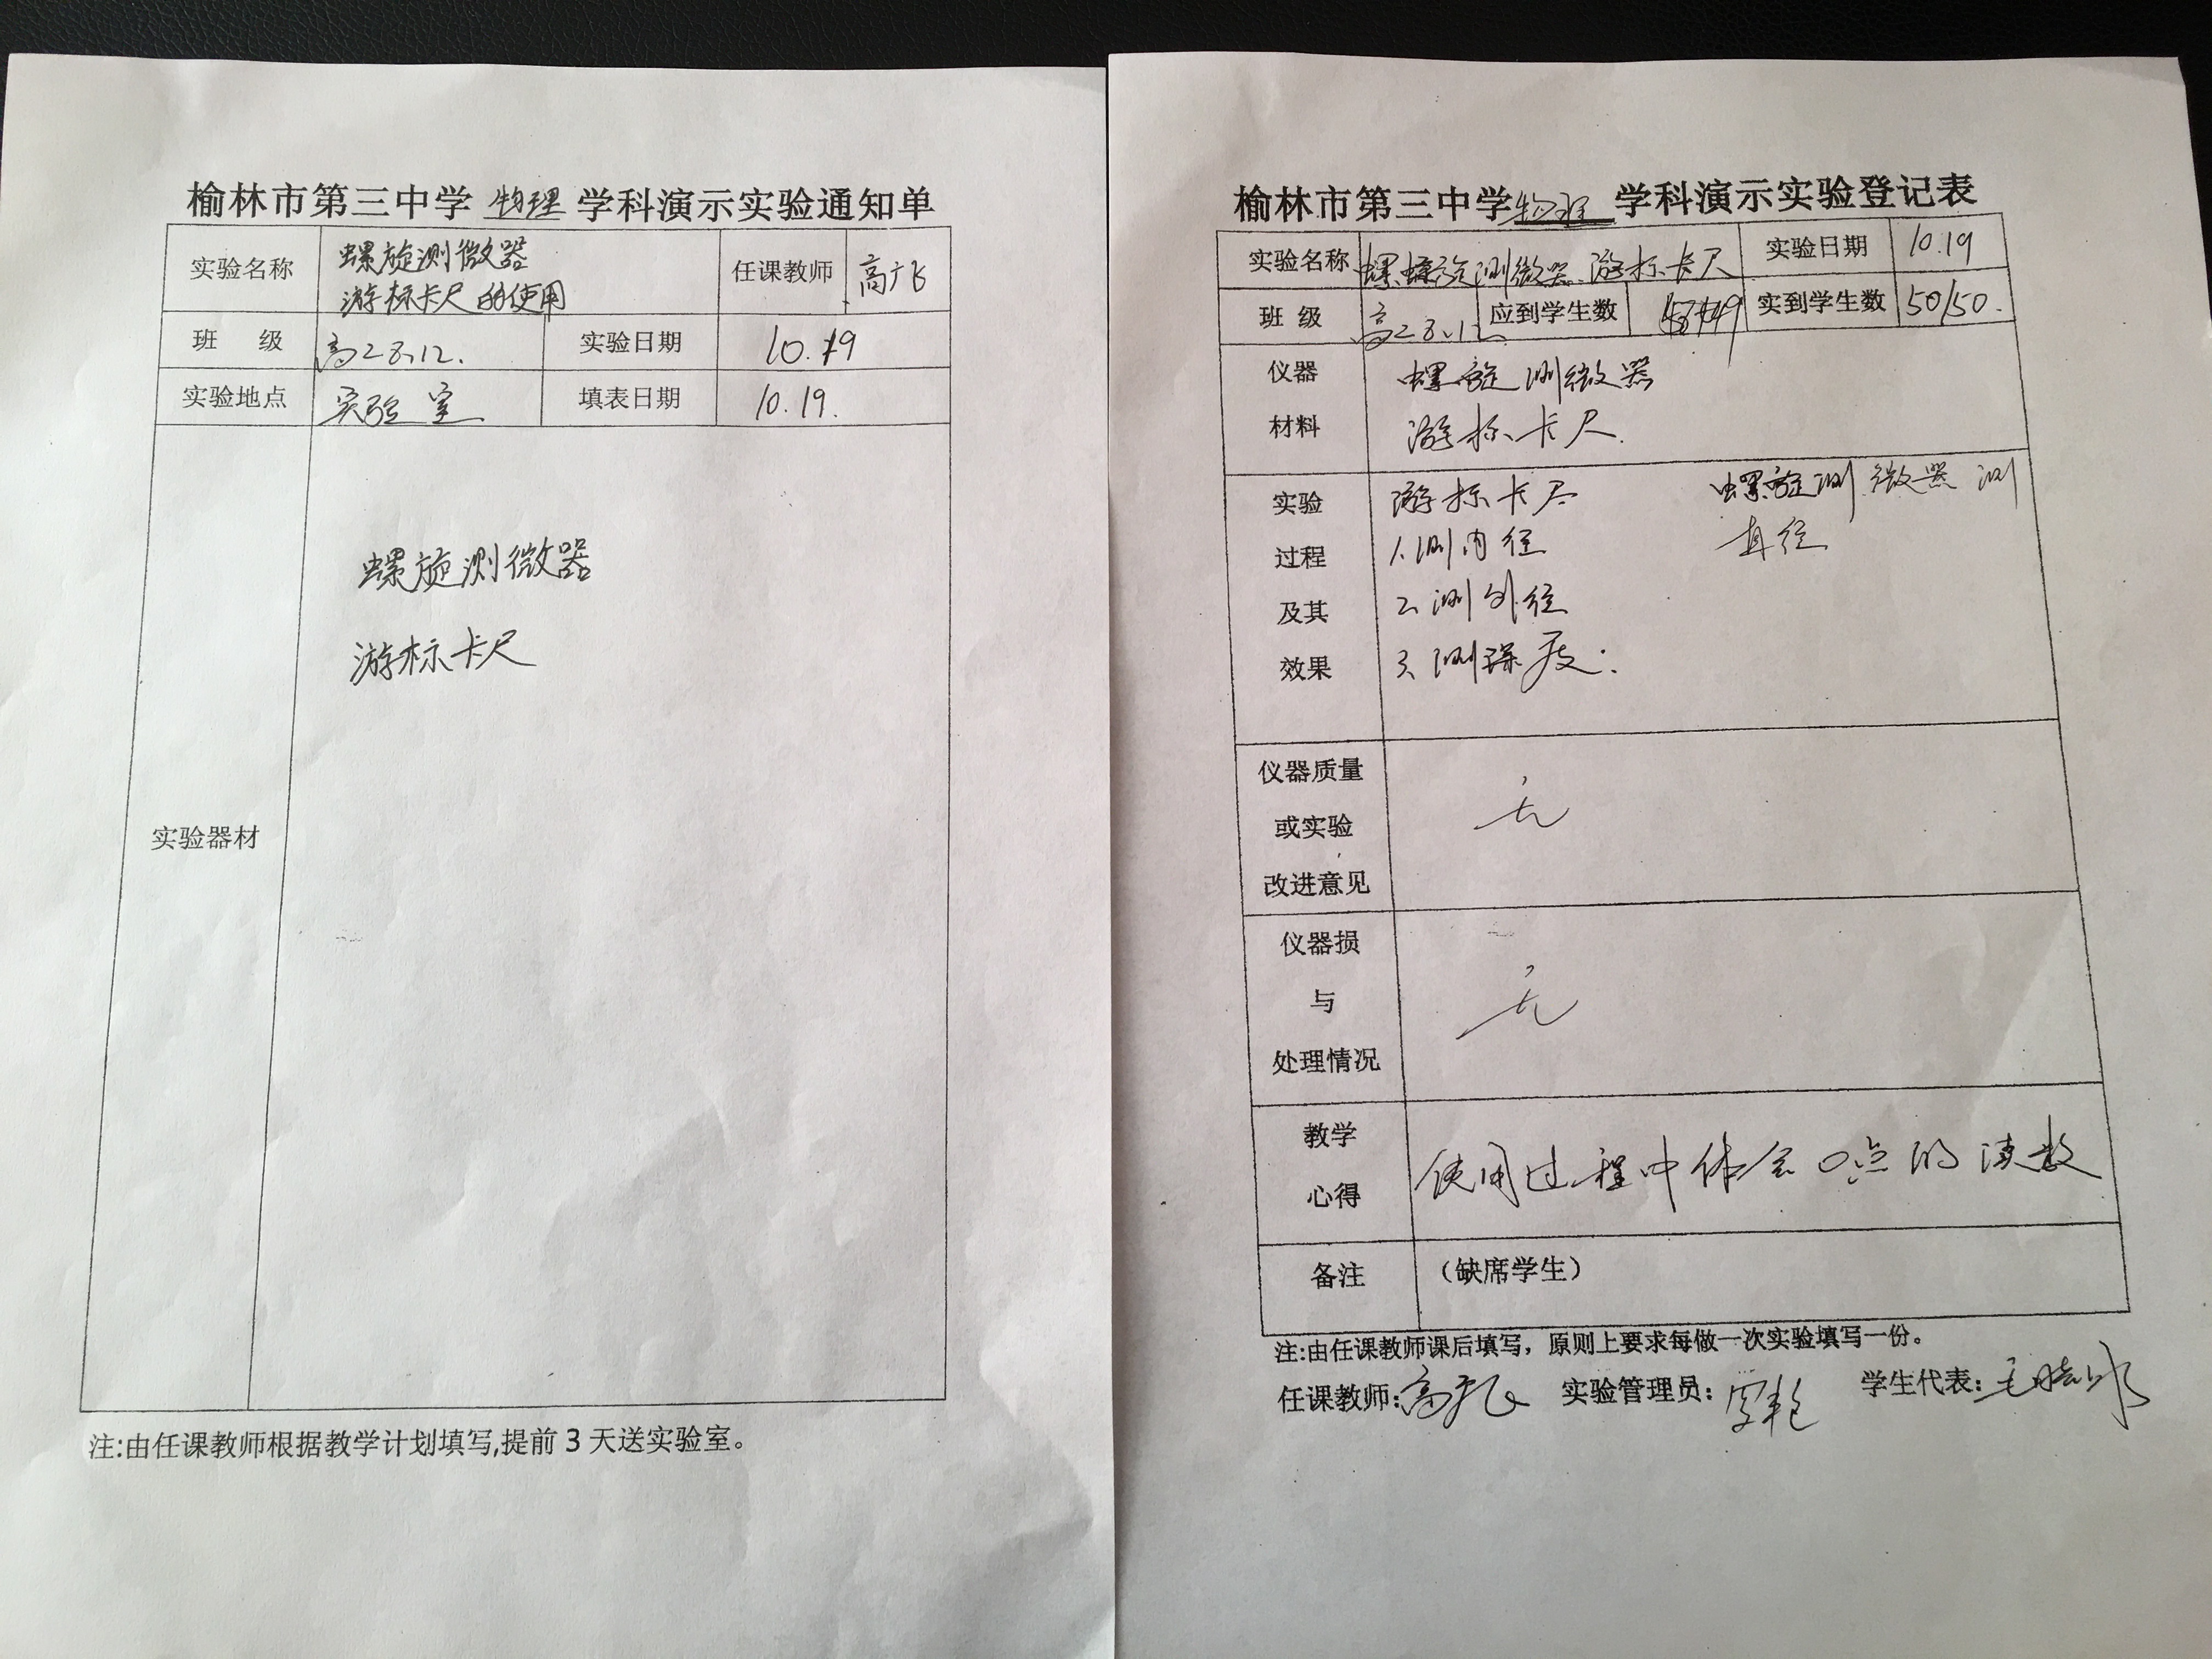 榆林市第三中学 物理 学科演示实验通知单
实验名称 螺旋测微器 任课教师 高广飞
游标卡尺的使用
班 级 高二8、12. 实验日期 10.19
实验地点 实验室 填表日期 10.19.
实验器材
螺旋测微器
游标卡尺
注:由任课教师根据教学计划填写,提前3天送实验室。
榆林市第三中学物理 学科演示实验登记表
实验名称 螺旋测微器、游标卡尺 实验日期 10.19
班 级 高二8、12 应到学生数 实到学生数 50/50.
仪器 螺旋测微器
材料 游标卡尺.
实验 游标卡尺 螺旋测微器测
过程 1、测内径 直径
及其 2、测外径
效果 3、测深度.
仪器质量
或实验 无
改进意见
仪器损
与 无
处理情况
教学
心得 使用过程中体会0点的读数
备注 （缺席学生）
注:由任课教师课后填写，原则上要求每做一次实验填写一份。
任课教师:高广飞 实验管理员: 学生代表: